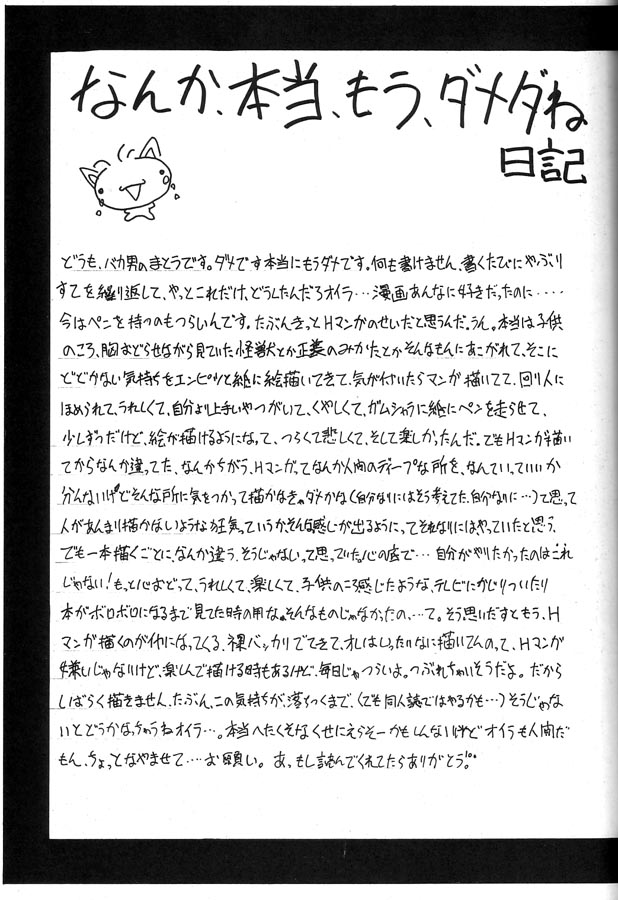 なんか、本当、もう、ダメダね
日記
どうも、バカ男のまとうです。ダメです本当にもうダメです。何も書けません、書くたびにやぶり
すてを繰り返して、やっとこれだけ、どうしたんだろオイラ…漫画あんなに好きだったのに‥‥
今はペンを持つのもつらいんです。たぶんきっとHマンガのせいだと思うんだ。うん。本当は子供
のころ、胸おどらせながら見ていた怪獣とか正義のみかたとかそんなもんにあこがれて、そこに
とどかない気持ちをエンピツと紙に絵描いてきて、気が付いたらマンガ描いてて、回り人に
ほめられて、うれしくて、自分より上手いやつがいて、くやしくて、ガムシャラに紙にペンを走らせて、
少しずつだけど、絵が描けるようになって、つらくて悲しくて、そして楽しかったんだ。でもHマンガ描い
てからなんか違ってた、なんかちがう、Hマンガってなんか人間のディープな所を、なんていっていいか
分んないけどそんな所に気をつかって描かなきゃダメかな(自分なりにはそう考えてた、自分なりに…)て思って
人があんまり描かないような狂気っていうか、そんな感じが出るように、ってそれなりにはやっていたと思う、
でも一本描くごとに、なんか違う、そうじゃないって思っていた。心の底で…自分がやりたかったのはこれ
じゃない!もっと心おどって、うれしくて、楽しくて、子供のころ感じたような、テレビにかじりついたり
本がボロボロになるまで見てた時の用な。そんなものじゃなかったの、…て。そう思いだすともう、H
マンガ描くのが仲になってくる、裸バッカリでてきて、オレはいったいなに描いてんのって、Hマンガ
嫌いじゃないけど、楽しんで描ける時もあるけど、毎日じゃつらいよ。つぶれちゃいそうだよ。だから
しばらく描きません、たぶん、この気持ちが、落ちつくまで、(でも同人誌ではやるかも…)そうじゃな
いとどうかなっちゃうねオイラ…。本当へたくそなくせにえらそーかもしんないけどオイラも人間だ
もん、ちょっとなやませて…お願い。あ、もし読んでくれてたらありがとう!。